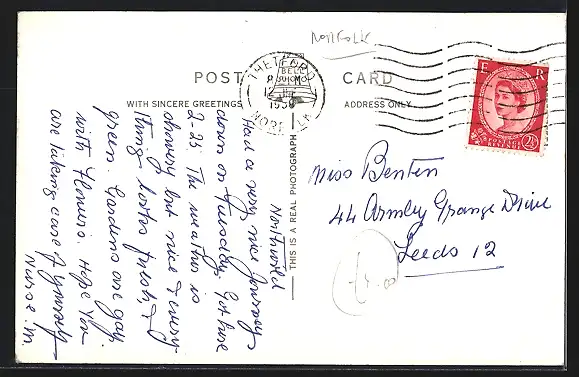 NORFOLK
POST CARD
WITH SINCERE GREETINGS
ADDRESS ONLY
THIS IS A REAL PHOTOGRAPH
THETFORD
NORFOLK
E R
POSTAGE
REVENUE
2½
Northwold
Had a very nice journey
down on Tuesday. Got here
2-25. The weather is
showery but nice & every
thing looks fresh &
green. Gardens are gay
with flowers. Hope you
are taking care of yourself
Nurse. M.
Miss Benten
44 Armley Grange Drive
Leeds 12